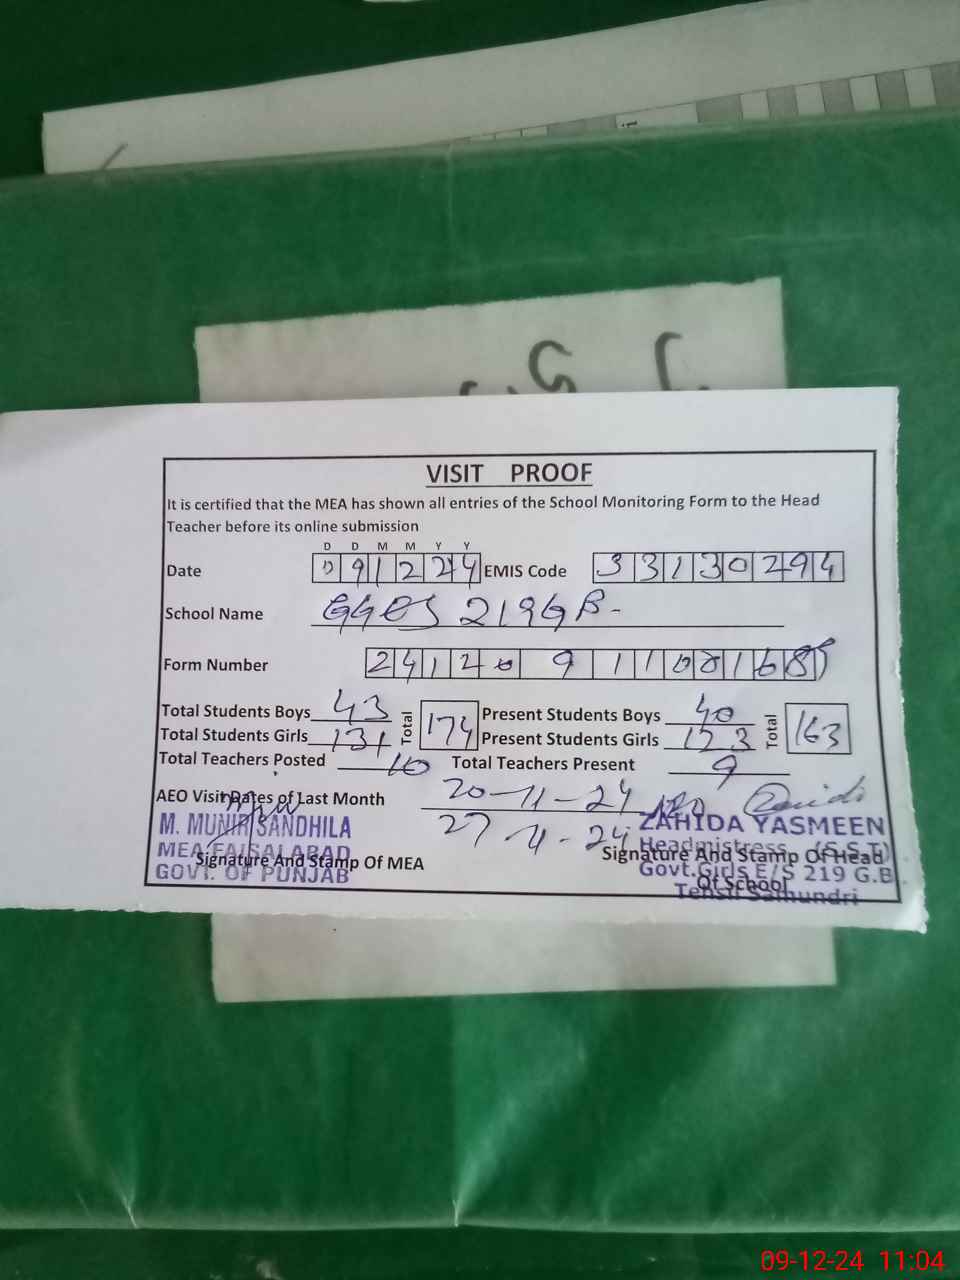 VISIT PROOF
It is certified that the MEA has shown all entries of the School Monitoring Form to the Head
Teacher before its online submission
D D M M Y Y
Date 091224 EMIS Code 33130294
School Name GGES 219GB-
Form Number
Total Students Boys 43 Total 174 Present Students Boys 40 Total 163
Total Students Girls 131 Present Students Girls 123
Total Teachers Posted 10 Total Teachers Present 9
AEO Visit Dates of Last Month 20-11-24
27-11-24
M. MUNIR SANDHILA
MEA FAISALABAD
GOVT. OF PUNJAB
Signature And Stamp Of MEA
ZAHIDA YASMEEN
Headmistress (S.S.T)
Govt.Girls E/S 219 G.B
Tehsil Samundri
Signature And Stamp Of Head
Of School
09-12-24 11:04